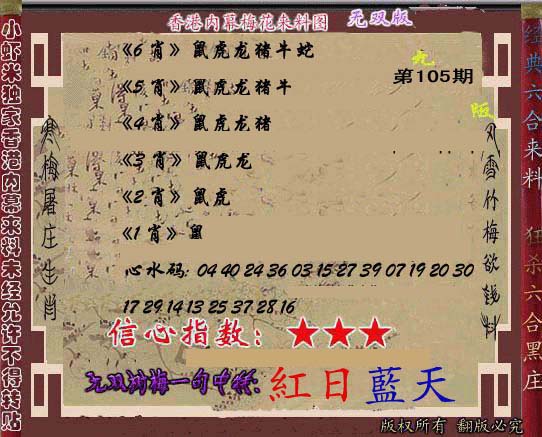 香港内幕梅花来料图 无双版
《6 肖》 鼠虎龙猪牛蛇
九
第105期
《5 肖》 鼠虎龙猪牛
《4 肖》 鼠虎龙猪
《3 肖》 鼠虎龙
《2 肖》 鼠虎
《1 肖》 鼠
心水码: 04 40 24 36 03 15 27 39 07 19 20 30
17 29 14 13 25 37 28 16
信心指数: ★★★
无双 梅一句中特: 紅日藍天
版权所有 翻版必究
小虾米独家香港内幕来料未经允许不得转贴
寒梅屠庄生肖
雪竹梅欲钱料
经典六合来料
狂杀六合黑庄